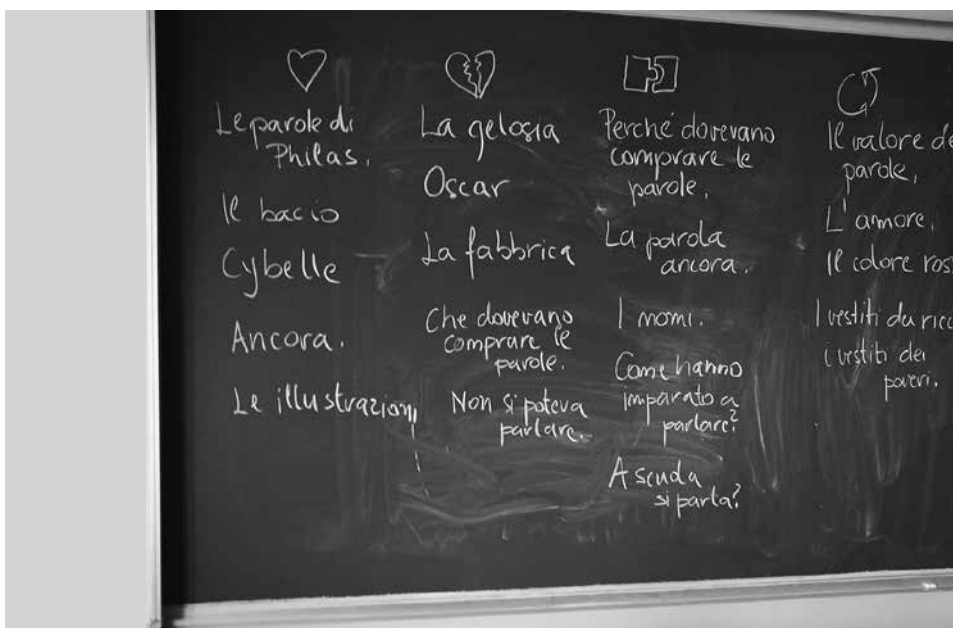 Le parole di
Philas.
Il bacio
Cybelle
Ancora.
Le illustrazioni
La gelosia
Oscar
La fabbrica
Che dovevano
comprare le
parole.
Non si poteva
parlare.
Perché dovevano
comprare le
parole.
La parola
ancora.
I nomi.
Come hanno
imparato a
parlare?
A scuola
si parla?
Il valore de
parole,
L'amore,
Il colore ross
I vestiti da ricc
i vestiti dei
poveri.